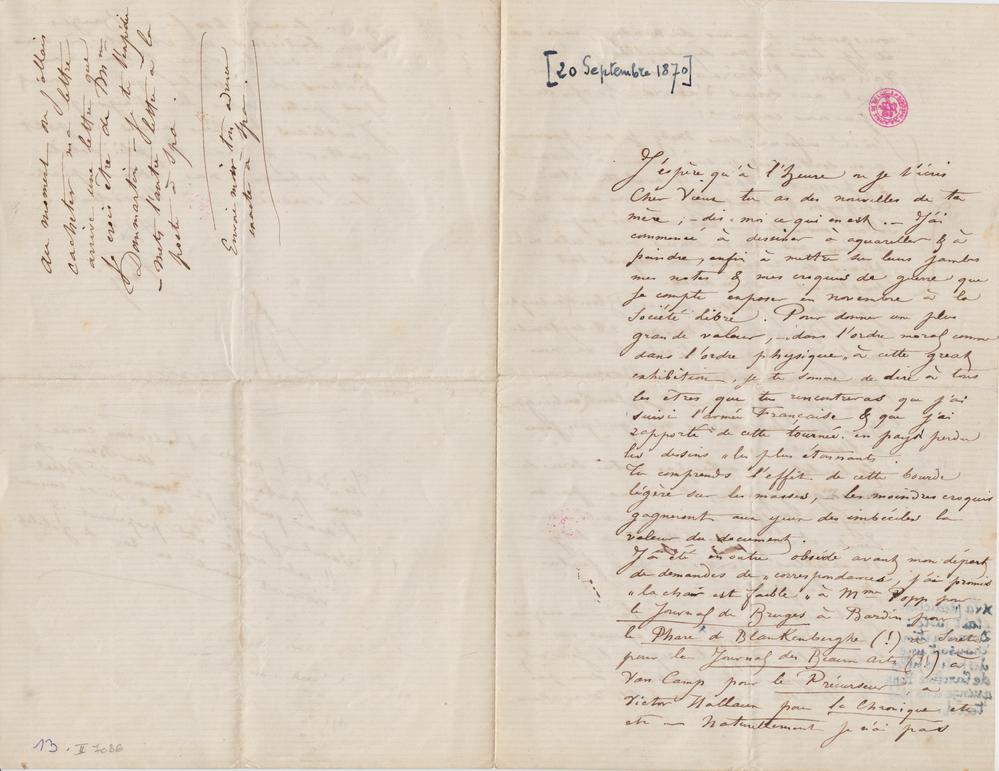 [20 Septembre 1870]
J'espère qu'à l'heure où je t'écris
Cher Vieux tu as des nouvelles de ta
mère, – dis-moi ce qui en est. – J'ai
commencé à dessiner à aquareller & à
peindre, enfin à mettre sur leurs jambes
mes notes & mes croquis de guerre que
je compte exposer en novembre à la
Société libre. Pour donner une plus
grande valeur, – dans l'ordre moral comme
dans l'ordre physique, à cette great
exhibition, je te somme de dire à tous
les êtres que tu rencontreras que j'ai
suivi l'armée Française & que j'ai
rapporté de cette tournée en pays perdu
les dessins "les plus étonnants
Tu comprends l'effet de cette bourde
légère sur les masses, les moindres croquis
gagneront aux yeux des imbéciles la
valeur du document.
J'ai été en outre obsédé avant mon départ
de demandes de "correspondances, j'ai promis
"la chair est faible" à Mme Popp pour
le Journal de Bruges à Bardin pour
le Phare de Blankenberghe (!) à
pour le Journal des Beaux Arts (!!) à
Van Camp pour le Précurseur à
Victor Hallaux pour la Chronique etc
etc – Naturellement je n'ai pas
au moment où j'allais
cacheter ma lettre
arrive une lettre que
je crois être de Mme
Dommartin – je te l'expédie
– Mets l'autre lettre à la
poste à Spa.
Envoie moi ton adresse
exacte à Spa.
13. II 7036